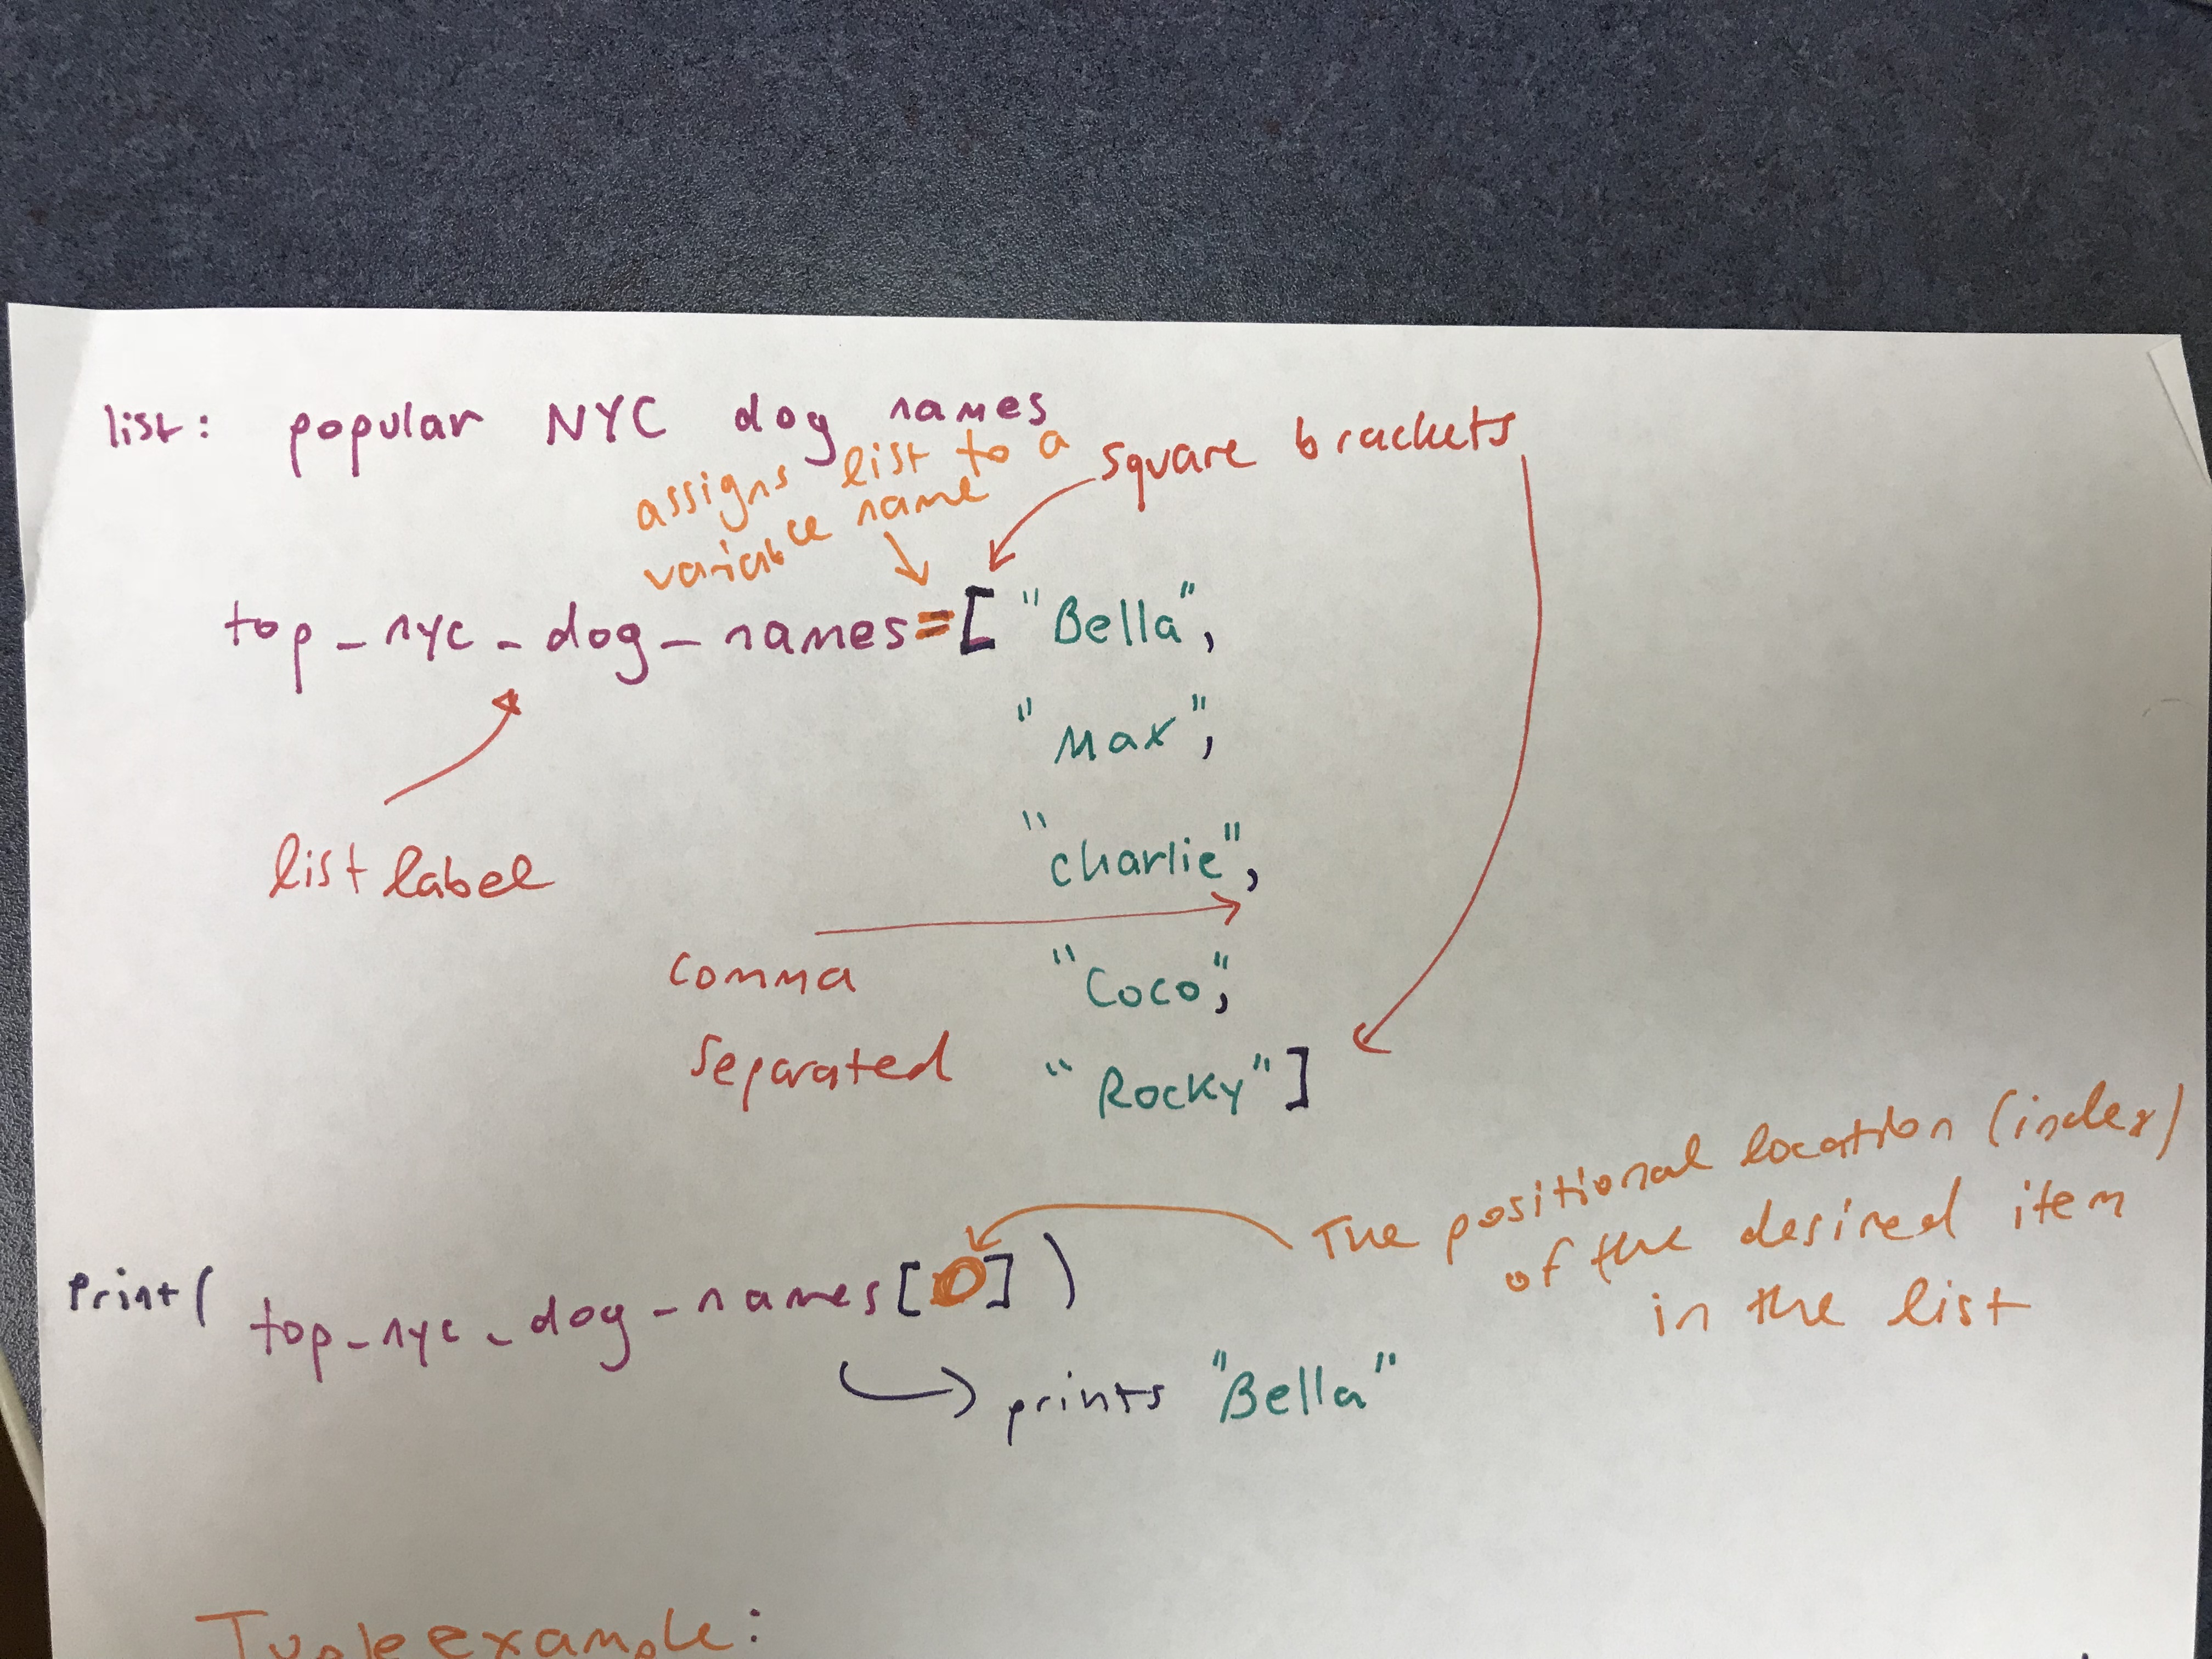 list: popular NYC dog names
assigns list to a
variable name
square brackets
top_nyc_dog_names=["Bella",
"Max",
list label
"charlie",
comma
"Coco",
separated
"Rocky"]
print(top_nyc_dog_names[0])
The positional location (index)
of the desired item
in the list
prints "Bella"
Tuple example: